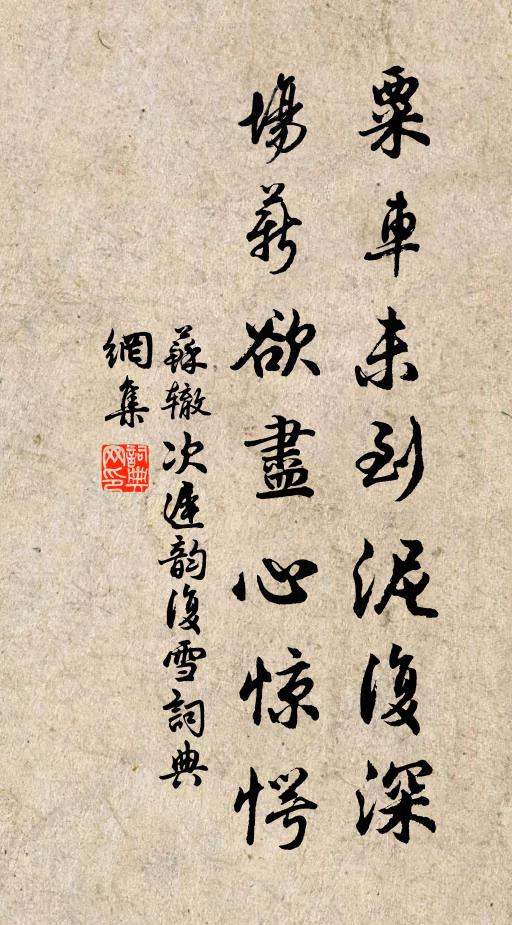 粟車未到泥復深
場薪欲盡心惊愕
蘇辙次遲韵復雪詞典
網集
詞典
网印